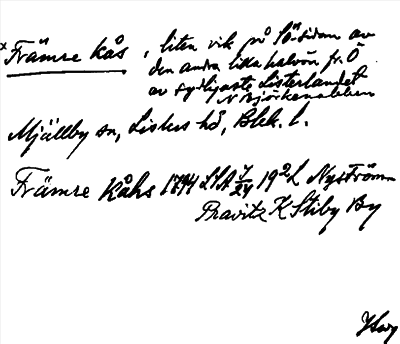 x Främre kås, liten vik på SÖ-sidan av
den andra lilla halvön fr. Ö
av sydligaste Listerlandet
N Björkenabben
Mjällby sn, Listers hd, Blek. l.
Främre Kåhs 1794 LSA 19 L Nyström
Pravitz K Stiby By